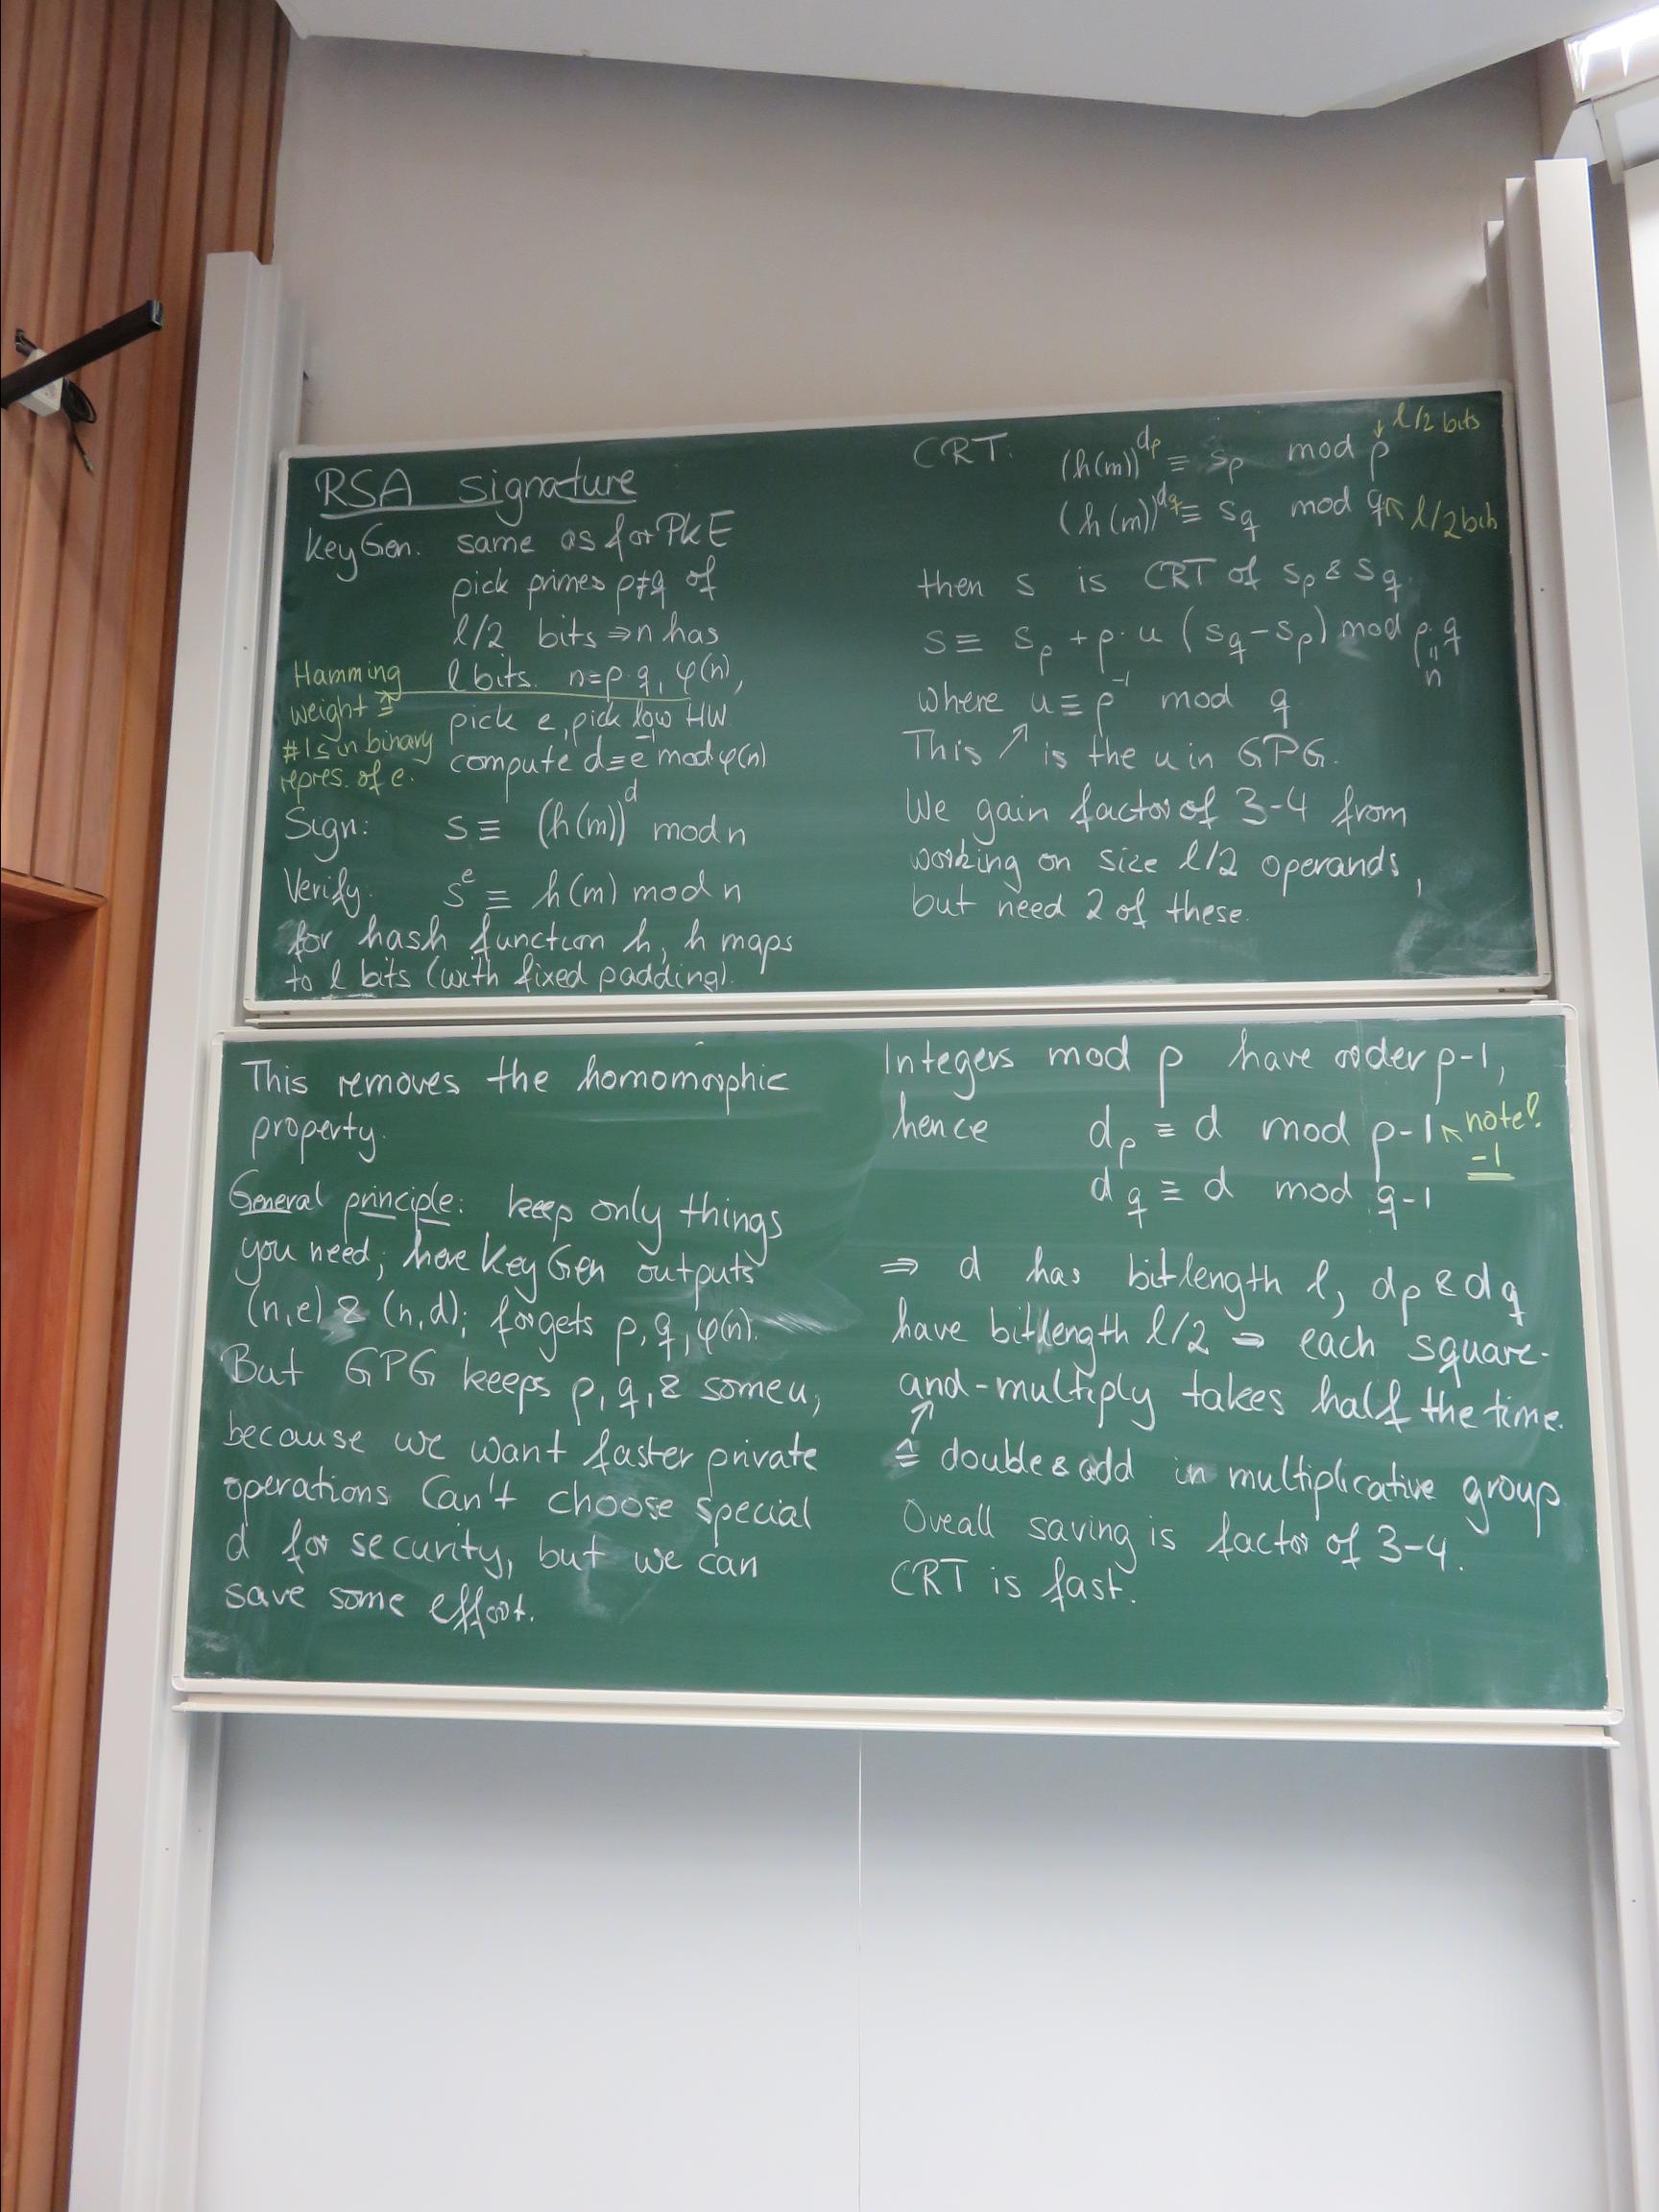 RSA signature
KeyGen: same as for PKE
pick primes p≠q of
l/2 bits ⇒ n has
l bits. n=p·q, φ(n),
pick e, pick low HW
compute d≡e⁻¹ mod φ(n)
Hamming
weight ≙
#1s in binary
repres. of e.
Sign: s≡ (h(m))^d mod n
Verify: s^e ≡ h(m) mod n
for hash function h, h maps
to l bits (with fixed padding).
CRT: (h(m))^dp ≡ sp mod p ↓ l/2 bits
(h(m))^dq ≡ sq mod q ↖ l/2 bits
then s is CRT of sp & sq.
s≡ sp + p·u (sq-sp) mod p·q
"
n
where u≡p⁻¹ mod q
This ↗ is the u in GPG.
We gain factor of 3-4 from
working on size l/2 operands,
but need 2 of these.
This removes the homomorphic
property.
General principle: keep only things
you need; here KeyGen outputs
(n,e) & (n,d); forgets p, q, φ(n).
But GPG keeeps p, q, & some u,
because we want faster private
operations Can't choose special
d for security, but we can
save some effort.
Integers mod p have order p-1,
hence dp ≡ d mod p-1 ↖ note!
-1
dq ≡ d mod q-1
⇒ d has bitlength l, dp & dq
have bitlength l/2 ⇒ each square-
and-multiply takes half the time.
↗
≙ double & add in multiplicative group
Oveall saving is factor of 3-4.
CRT is fast.